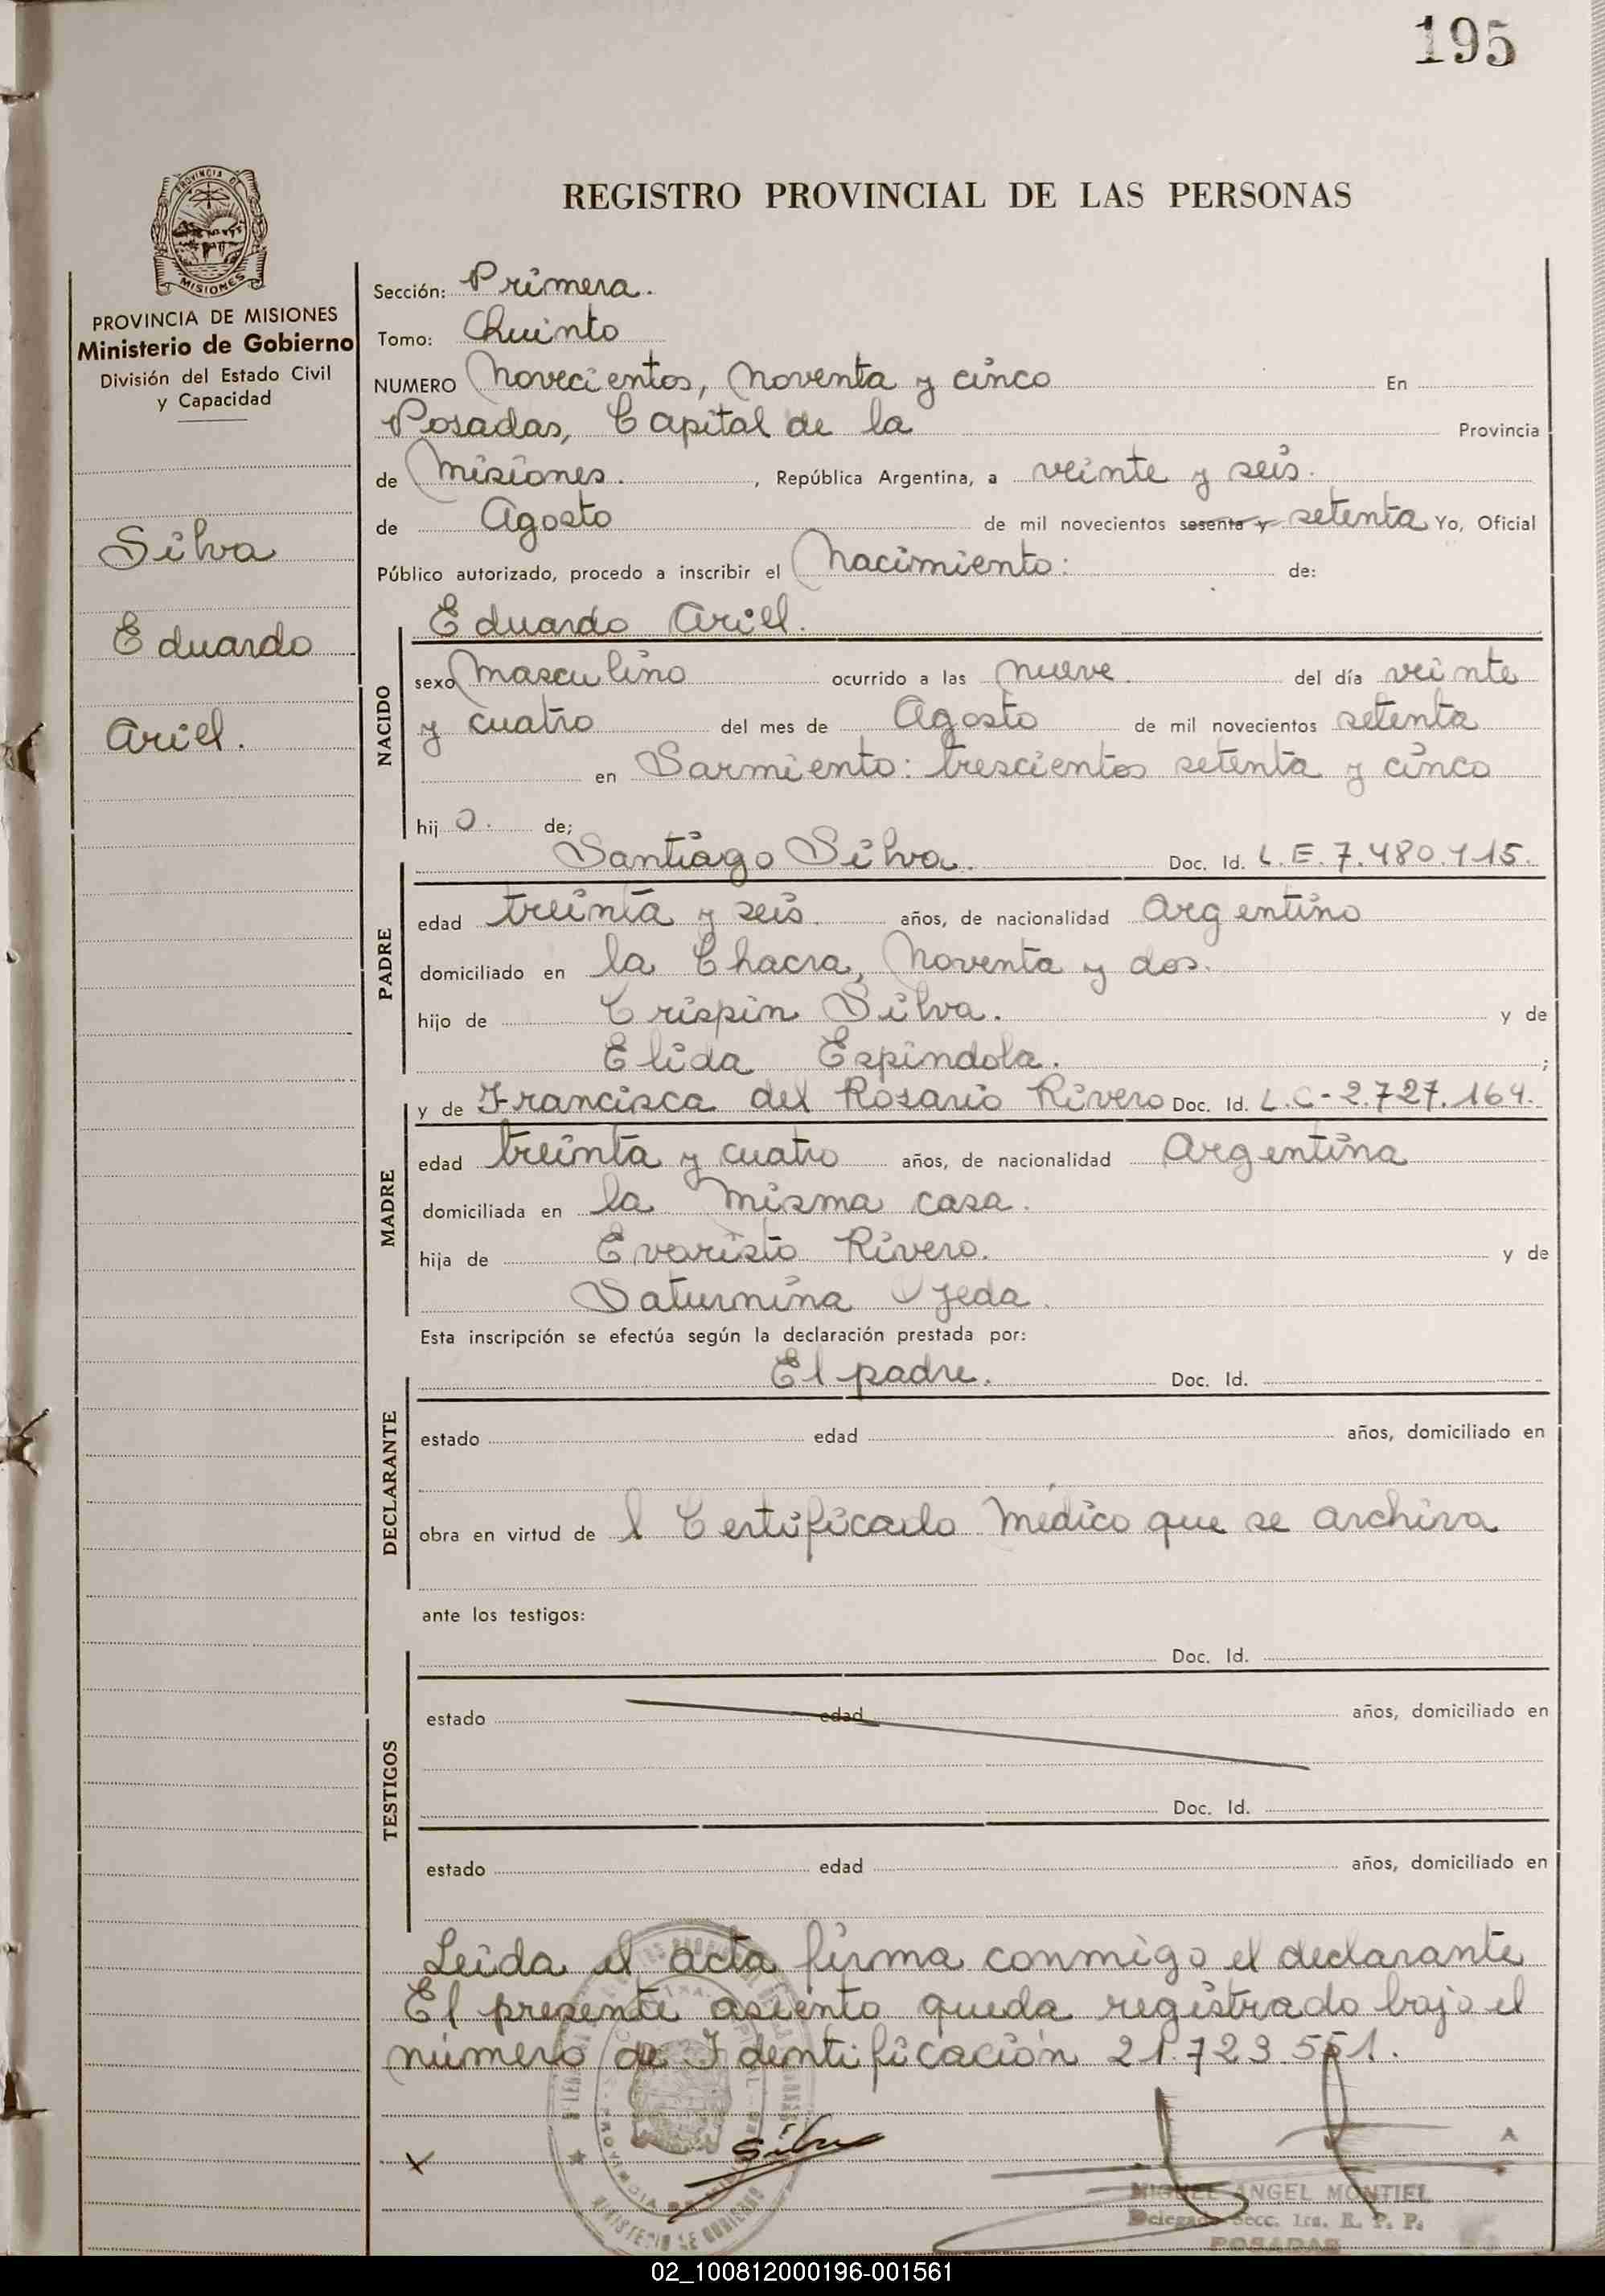 195
PROVINCIA DE
MISIONES
REGISTRO PROVINCIAL DE LAS PERSONAS
PROVINCIA DE MISIONES
Ministerio de Gobierno
División del Estado Civil
y Capacidad
Silva
Eduardo
Ariel.
Sección: Primera.
Tomo: Quinto
NUMERO Novecientos, Noventa y cinco En
Posadas, Capital de la Provincia
de Misiones. , República Argentina, a veinte y seis.
de Agosto de mil novecientos sesenta y setenta Yo, Oficial
Público autorizado, procedo a inscribir el Nacimiento: de:
Eduardo Ariel.
NACIDO
sexo Masculino ocurrido a las nueve. del día veinte
y cuatro del mes de Agosto de mil novecientos setenta
en Sarmiento: trescientos setenta y cinco
hij o. de;
PADRE
Santiago Silva. Doc. Id. L.E. 7.480.715.
edad treinta y seis. años, de nacionalidad Argentino
domiciliado en la Chacra, Noventa y dos.
hijo de Crispin Silva. y de
Elida Espindola. ;
MADRE
y de Francisca del Rosario Rivero Doc. Id. L.C-2.727.164.
edad treinta y cuatro años, de nacionalidad Argentina
domiciliada en la misma casa.
hija de Evaristo Rivero. y de
Saturnina Ojeda.
Esta inscripción se efectúa según la declaración prestada por:
DECLARANTE
El padre. Doc. Id.
estado edad años, domiciliado en
obra en virtud de l Certificado Médico que se archiva
ante los testigos:
TESTIGOS
Doc. Id.
estado edad años, domiciliado en
Doc. Id.
estado edad años, domiciliado en
Leida el acta firma conmigo el declarante
El presente asiento queda registrado bajo el
número de Identificación 21.723.551.
x Silva
MIGUEL ANGEL MONTIEL
Delegado Secc. 1ra. R. P. P.
POSADAS
02_100812000196-001561